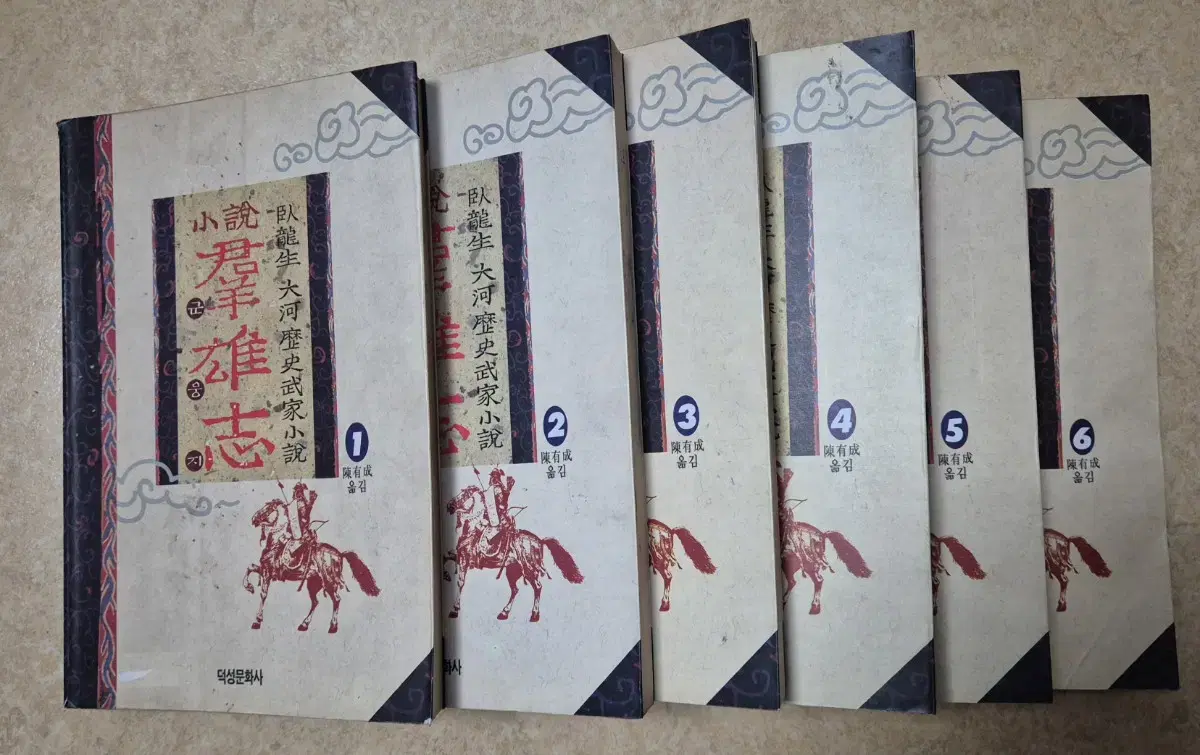 小說
羣雄志
군웅지
臥龍生 大河 歷史武家小說
1
陳有成
옮김
덕성문화사
臥龍生 大河 歷史武家小說
2
陳有成
옮김
화사
3
陳有成
옮김
4
陳有成
옮김
5
陳有成
옮김
6
陳有成
옮김